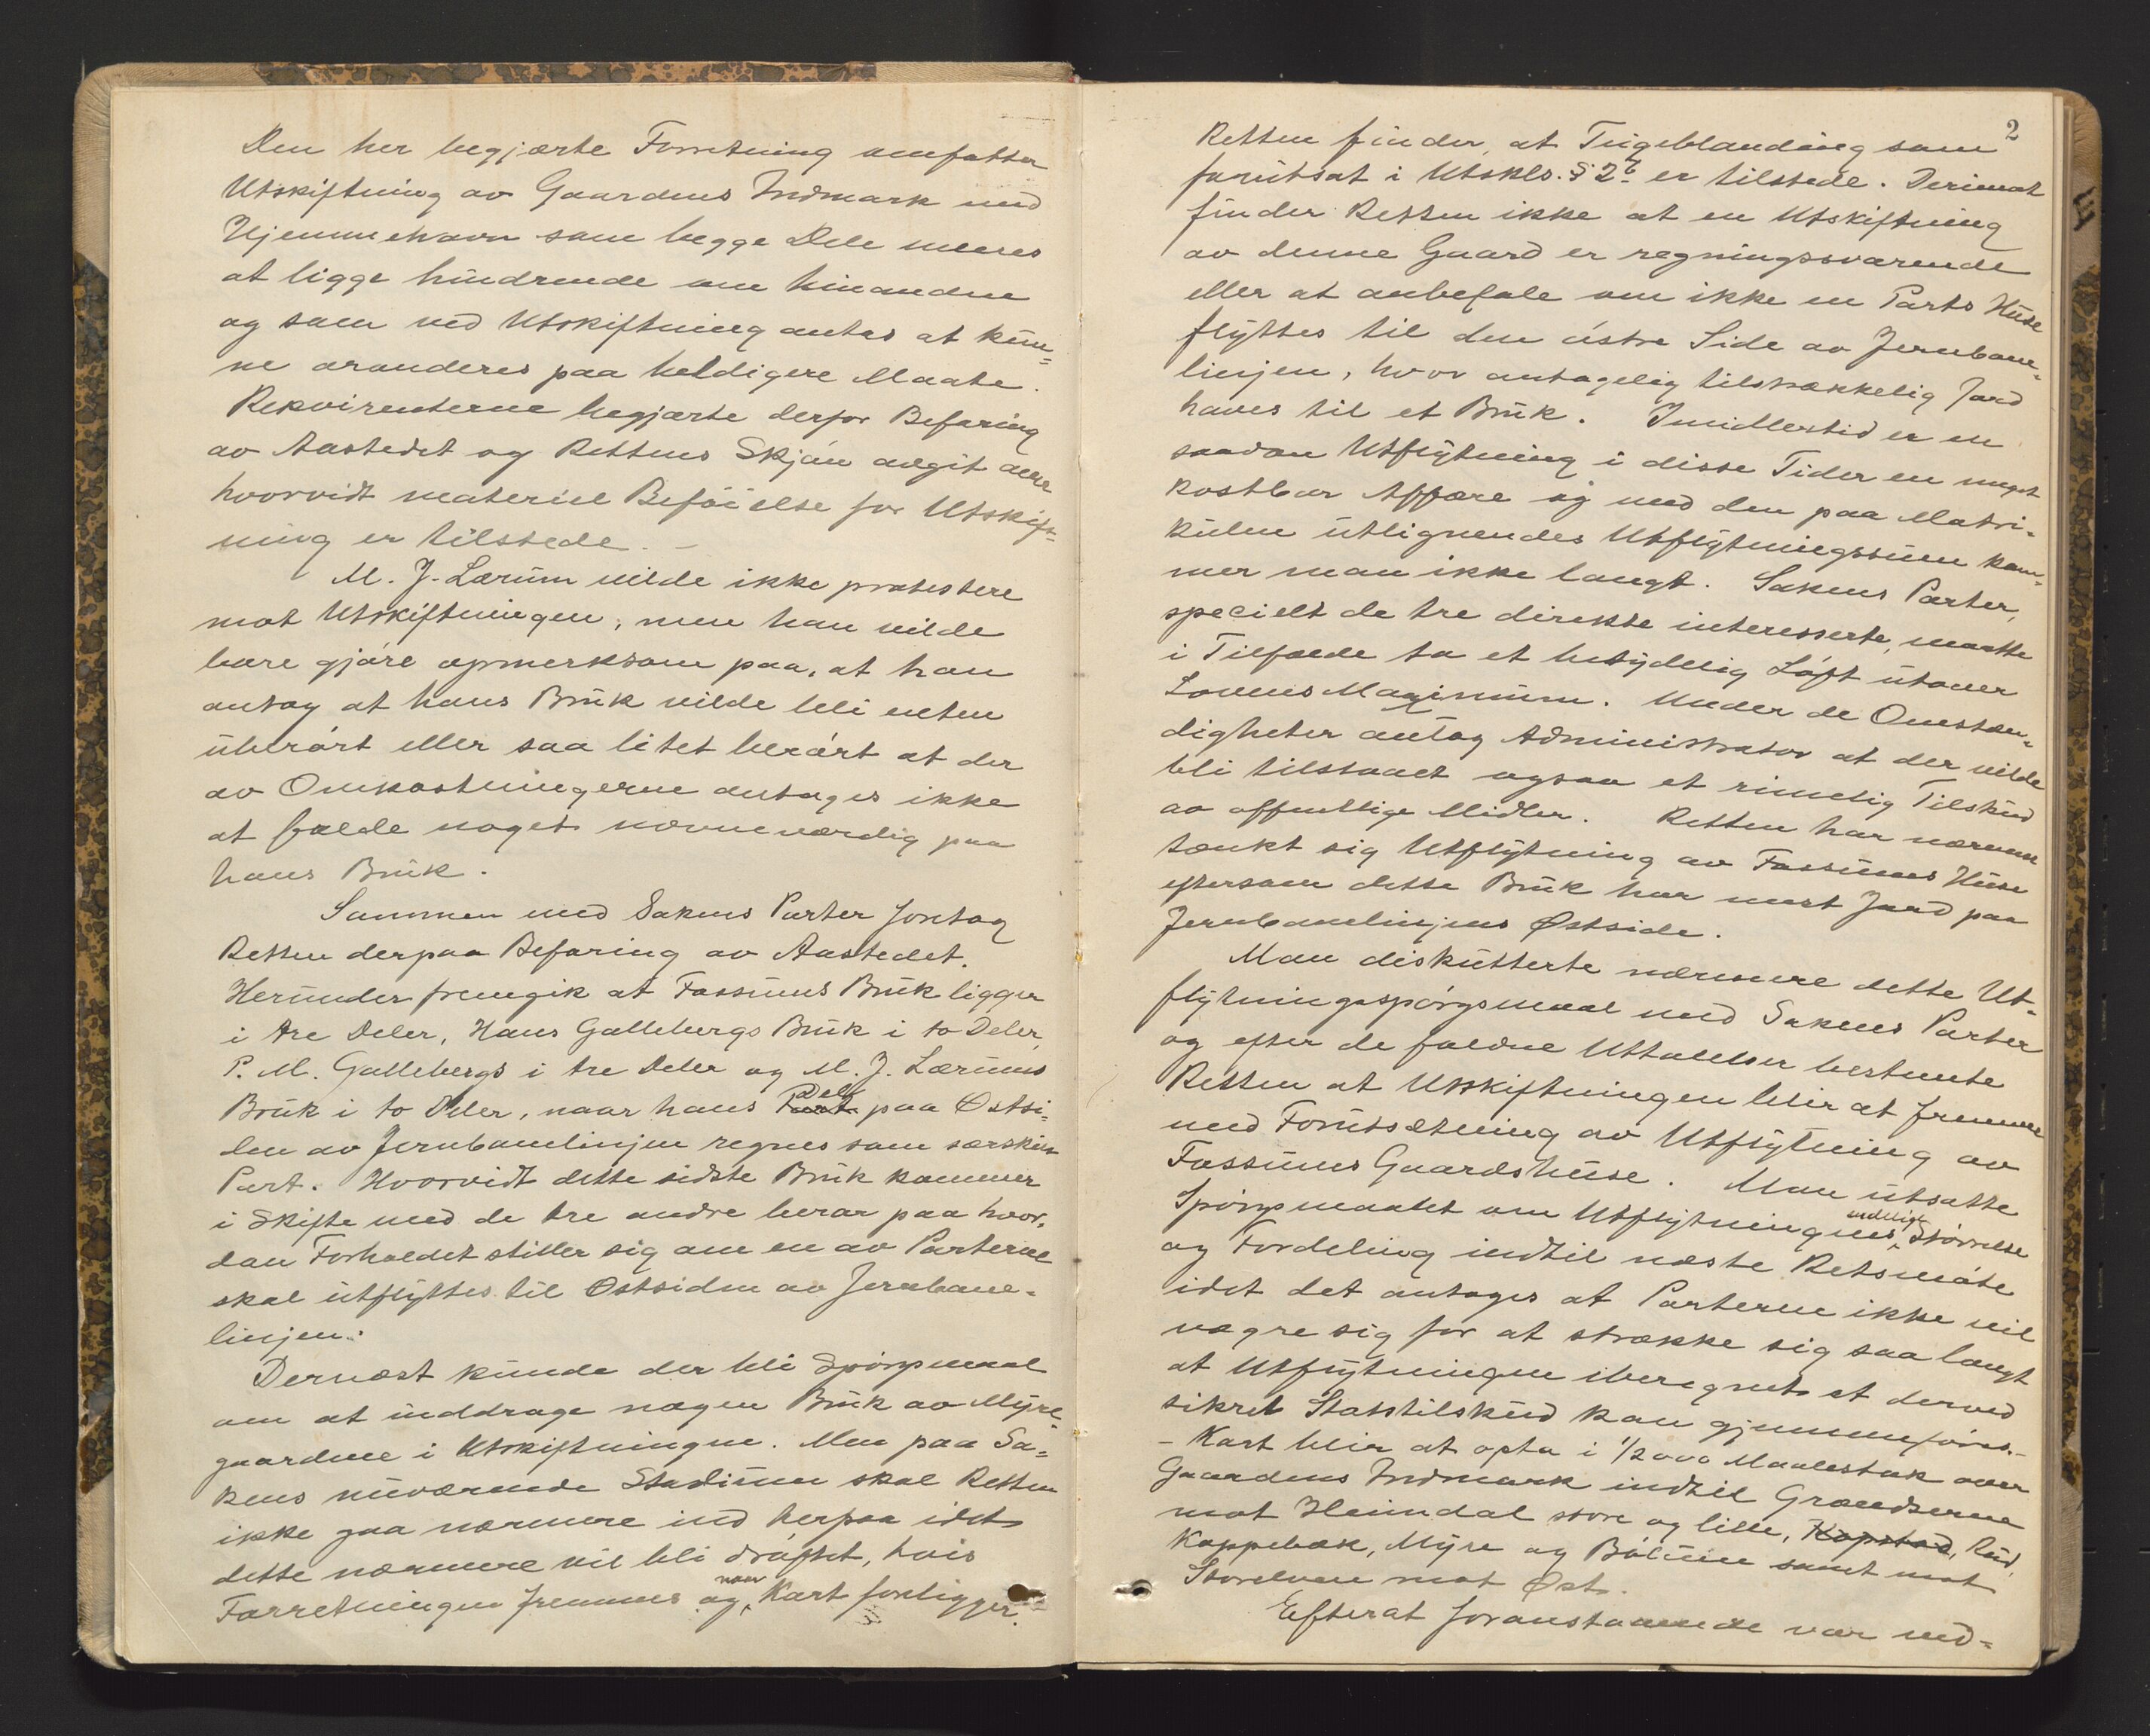 Den her begjærte Forretning omfatter
Utskiftning av Gaardens Indmark med
Hjemmehavn som begge Dele menes
at ligge hindrende om hinanden
og som ved Utskiftning antas at kun-
ne aronderes paa heldigere Maate.
Rekvirenterne begjærte derfor Befaring
av Aastedet og Rettens Skjøn avgit om
hvorvidt materiel Beføielse for Utskift-
ning er tilstede. –
M. J. Lærum vilde ikke protestere
mot Utskiftningen, men han vilde
bare gjøre opmerksom paa, at han
antog at hans Bruk vilde bli enten
uberørt eller saa litet berørt at der
av Omkostningerne antages ikke
at falde noget nævneværdig paa
hans Bruk.
Sammen med Sakens Parter foretog
Retten derpaa Befaring av Aastedet.
Herunder fremgik at Fossums Bruk ligger
i tre Deler, Hans Gallebergs Bruk i to Deler,
P. M. Gallebergs i tre Deler og M. J. Lærums
Bruk i to Deler, naar hans Part Del paa Østsi-
den av Jernbanelinjen regnes som særskilt
Part. Hvorvidt dette sidste Bruk kommer
i Skifte med de tre andre beror paa hvor-
dan Forholdet stiller sig om en av Parterne
skal utflyttes til Østsiden av Jernbane-
linjen.
Dernæst kunde der bli Spørgsmaal
om at inddrage nogen Bruk av Myre-
gaardene i Utskiftningen. Men paa Sa-
kens nuværende Stadium skal Retten
ikke gaa nærmere ind herpaa idet
dette nærmere vil bli drøftet, hvis
Forretningen fremmes og naar Kart foreligger.
2
Retten finder, at Teigeblanding som
forutsat i Utskls. § 2 b er tilstede. Derimot
finder Retten ikke at en Utskiftning
av denne Gaard er regningssvarende
eller at anbefale om ikke en Parts Huse
flyttes til den østre Side av Jernbane-
linjen, hvor antagelig tilstrækkelig Jord
haves til et Bruk. Imidlertid er en
saadan Utflytning i disse Tider en meget
kostbar Affære og med den paa Matri-
kulen utlignendes Utflytningssum kom-
mer man ikke langt. Sakens Parter,
specielt de tre direkte interesserte, maatte
i Tilfælde ta et betydelig Løft utover
Lovens Maximum. Under de Omstæn-
digheter antog Administrator at der vilde
bli tilstaaet ogsaa et rimelig Tilskud
av offentlige Midler. Retten har nærmest
tænkt sig Utflytning av Fossums Huse
eftersom dette Bruk har mest Jord paa
Jernbanelinjens Østside.
Man diskutterte nærmere dette Ut-
flytningsspørgsmaal med Sakens Parter
og efter de faldne Uttalelser bestemte
Retten at Utskiftningen blir at fremme
med Forutsætning av Utflytning av
Fossums Gaardshuse. Man utsatte
Spørgsmaalet om Utflytningens endelige Størrelse
og Fordeling indtil næste Retsmøte
idet det antages at Parterne ikke vil
vægre sig for at strække sig saa langt
at Utflytningen iberegnet et derved
sikret Statstilskud kan gjennemføres.–
– Kart blir at opta i 1/2000 Maalestok over
Gaardens Indmark indtil Grændserne
mot Heimdal store og lille, Kopstad, Rud,
Koppebæk, Myre og Bølum samt mot
Storelven mot Øst.
Efterat foranstaaende var ned-